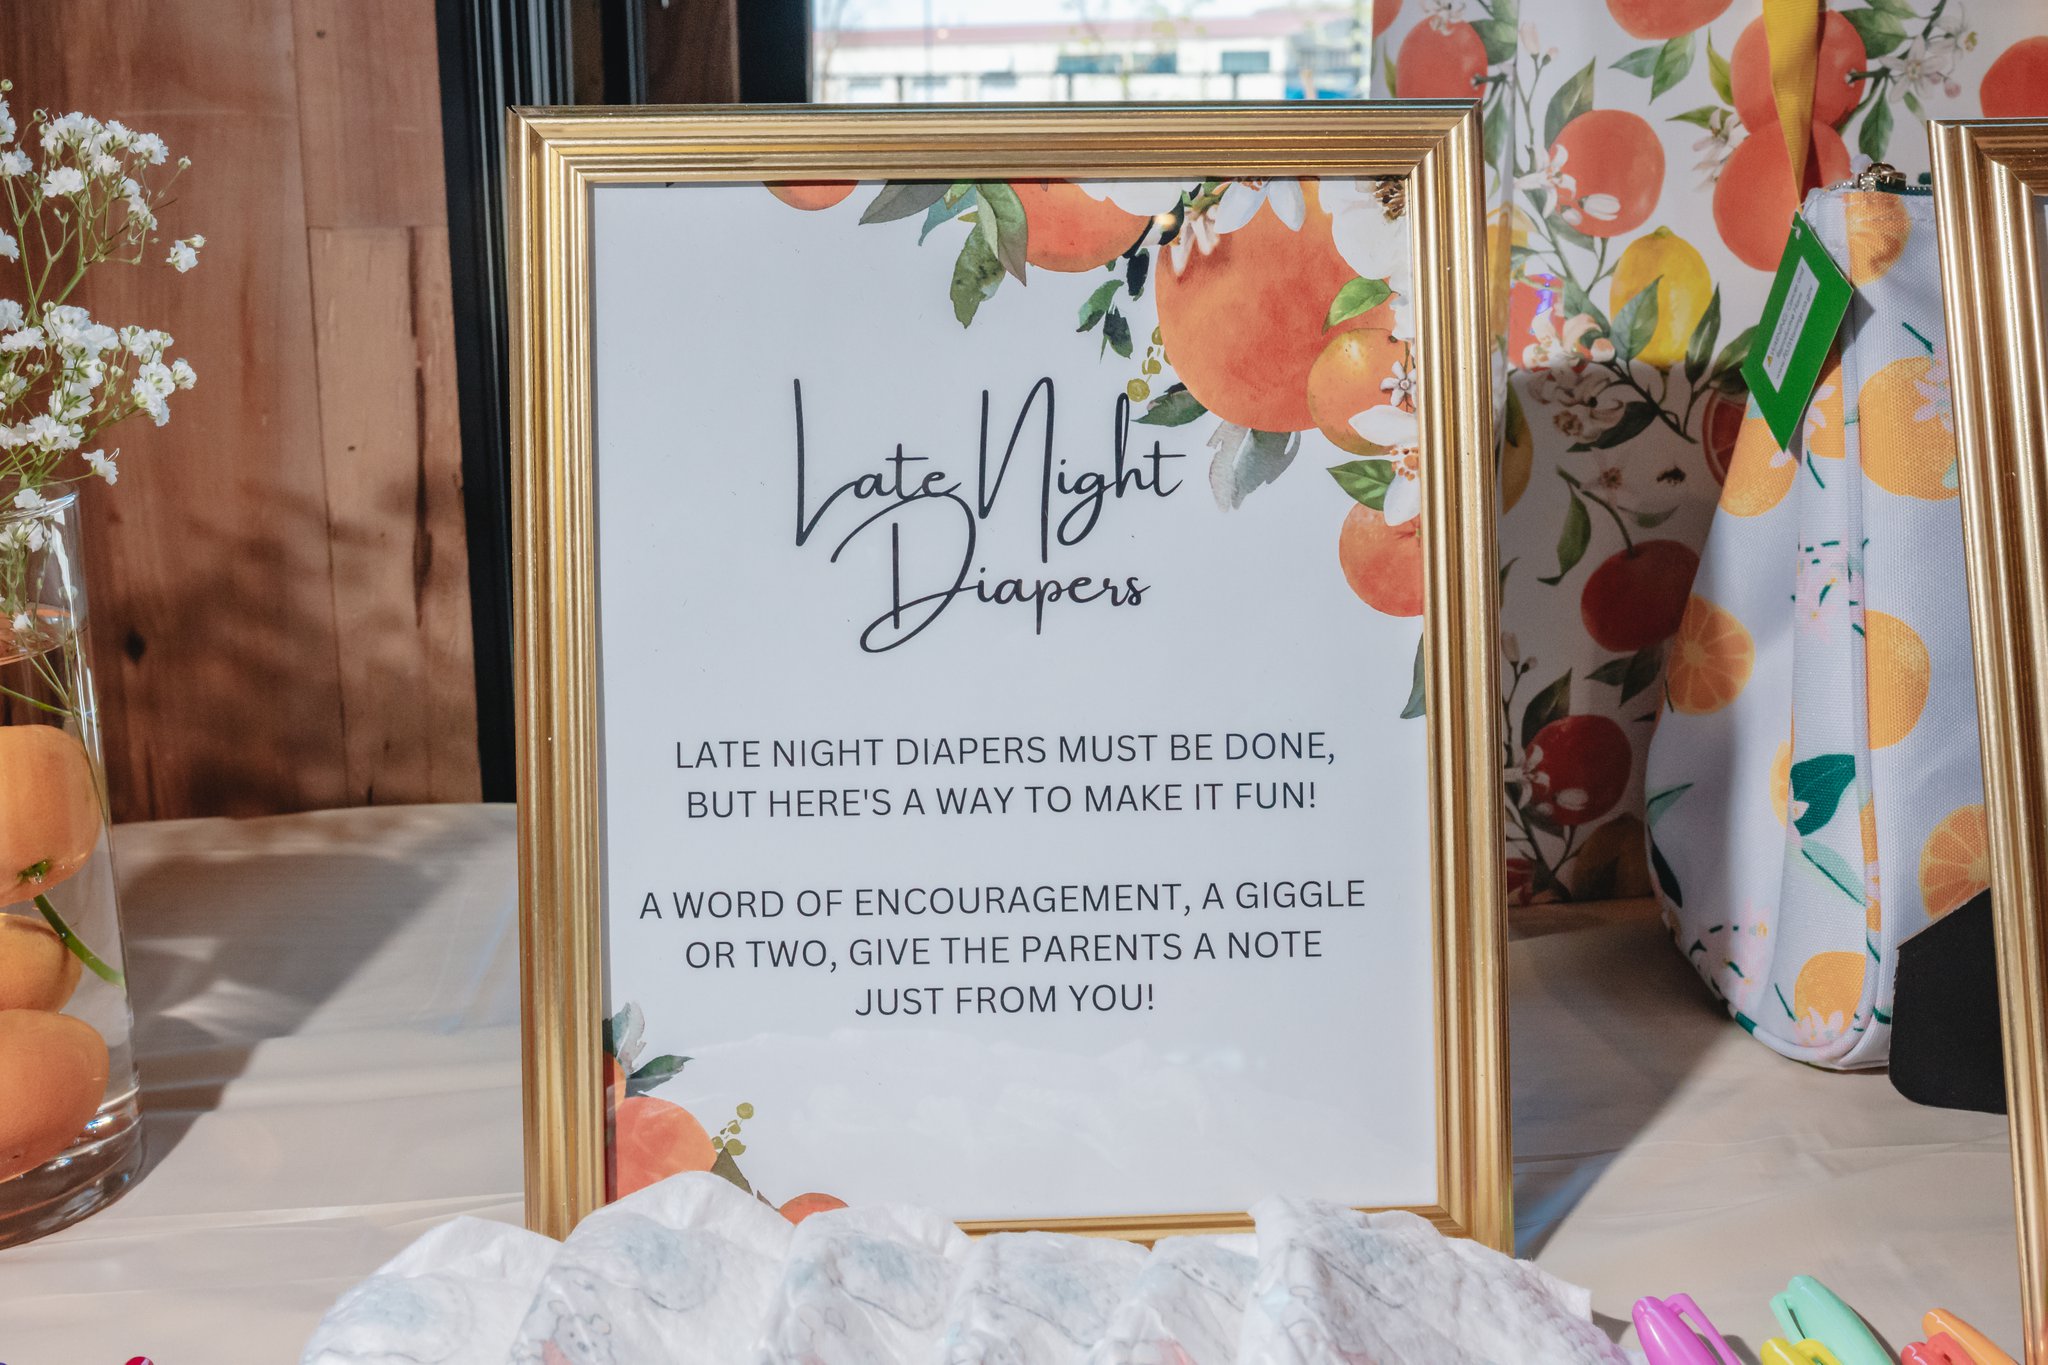 Late Night
Diapers
LATE NIGHT DIAPERS MUST BE DONE,
BUT HERE'S A WAY TO MAKE IT FUN!
A WORD OF ENCOURAGEMENT, A GIGGLE
OR TWO, GIVE THE PARENTS A NOTE
JUST FROM YOU!